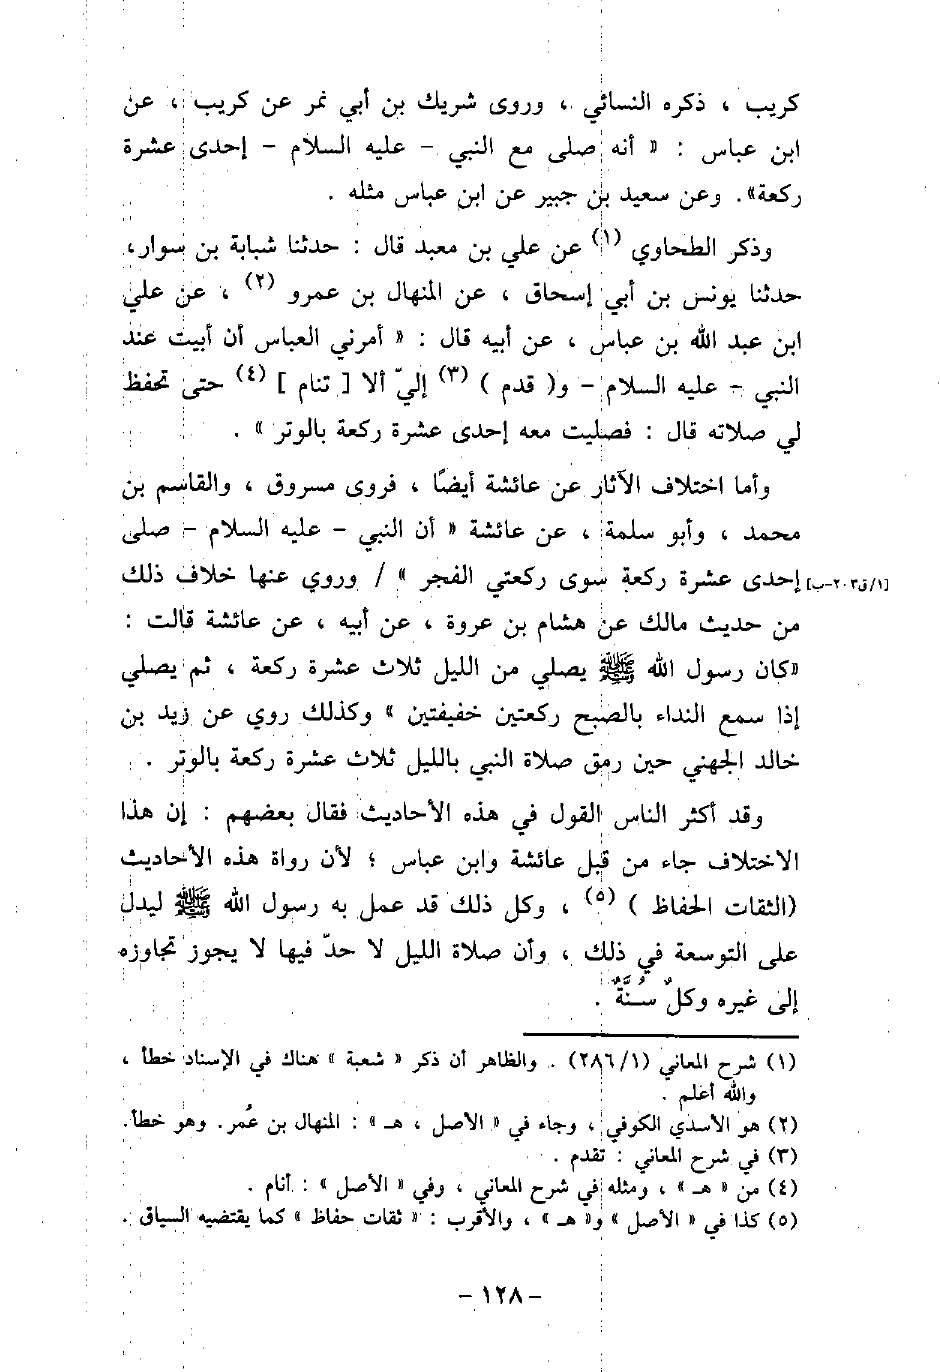 كريب ، ذكره النسائي ، وروى شريك بن أبي نمر عن كريب ، عن
ابن عباس : « أنه صلى مع النبي - عليه السلام - إحدى عشرة
ركعة». وعن سعيد بن جبير عن ابن عباس مثله .
وذكر الطحاوي (١) عن علي بن معبد قال : حدثنا شبابة بن سوار،
حدثنا يونس بن أبي إسحاق ، عن المنهال بن عمرو (٢) ، عن علي
ابن عبد الله بن عباس ، عن أبيه قال : « أمرني العباس أن أبيت عند
النبي - عليه السلام - و( قدم ) (٣) إليّ ألا [ تنام ] (٤) حتى تحفظ
لي صلاته قال : فصليت معه إحدى عشرة ركعة بالوتر » .
وأما اختلاف الآثار عن عائشة أيضًا ، فروى مسروق ، والقاسم بن
محمد ، وأبو سلمة ، عن عائشة « أن النبي - عليه السلام - صلى
[١/ق٢٠٣-ب] إحدى عشرة ركعة سوى ركعتي الفجر » / وروي عنها خلاف ذلك
من حديث مالك عن هشام بن عروة ، عن أبيه ، عن عائشة قالت :
«كان رسول الله ﷺ يصلي من الليل ثلاث عشرة ركعة ، ثم يصلي
إذا سمع النداء بالصبح ركعتين خفيفتين » وكذلك روي عن زيد بن
خالد الجهني حين رمق صلاة النبي بالليل ثلاث عشرة ركعة بالوتر .
وقد أكثر الناس القول في هذه الأحاديث فقال بعضهم : إن هذا
الاختلاف جاء من قبل عائشة وابن عباس ؛ لأن رواة هذه الأحاديث
(الثقات الحفاظ ) (٥) ، وكل ذلك قد عمل به رسول الله ﷺ ليدل
على التوسعة في ذلك ، وأن صلاة الليل لا حدّ فيها لا يجوز تجاوزه
إلى غيره وكلٌ سُنَّةٌ .
(١) شرح المعاني (٢٨٦/١) . والظاهر أن ذكر « شعبة » هناك في الإسناد خطأ ،
والله أعلم .
(٢) هو الأسدي الكوفي ، وجاء في « الأصل ، هـ » : المنهال بن عُمر. وهو خطأ.
(٣) في شرح المعاني : تقدم .
(٤) من « هـ » ، ومثله في شرح المعاني ، وفي « الأصل » : أنام .
(٥) كذا في « الأصل » و« هـ » ، والأقرب : « ثقات حفاظ » كما يقتضيه السياق .
- ١٢٨ -